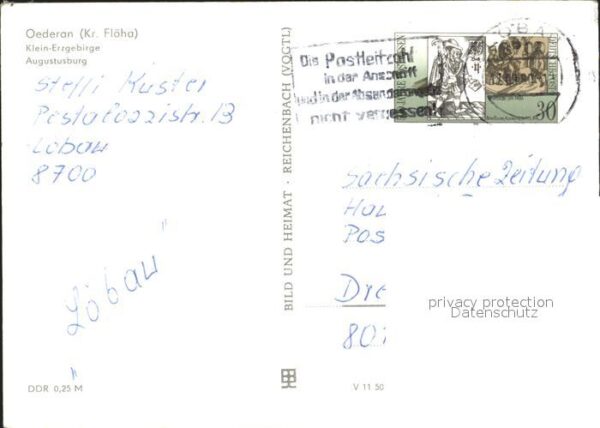 Oederan (Kr. Flöha)
Klein-Erzgebirge
Augustusburg
Steffi Kuster
Pestalozzistr. 13
Löbau
8700
Löbau
DDR 0,25 M
BILD UND HEIMAT · REICHENBACH (VOGTL)
V 11 50
Die Postleitzahl
in der Anschrift
und in der Absenderangabe
nicht vergessen
30
Sächsische Zeitung
Hau
Pos
Dre
80
privacy protection
Datenschutz